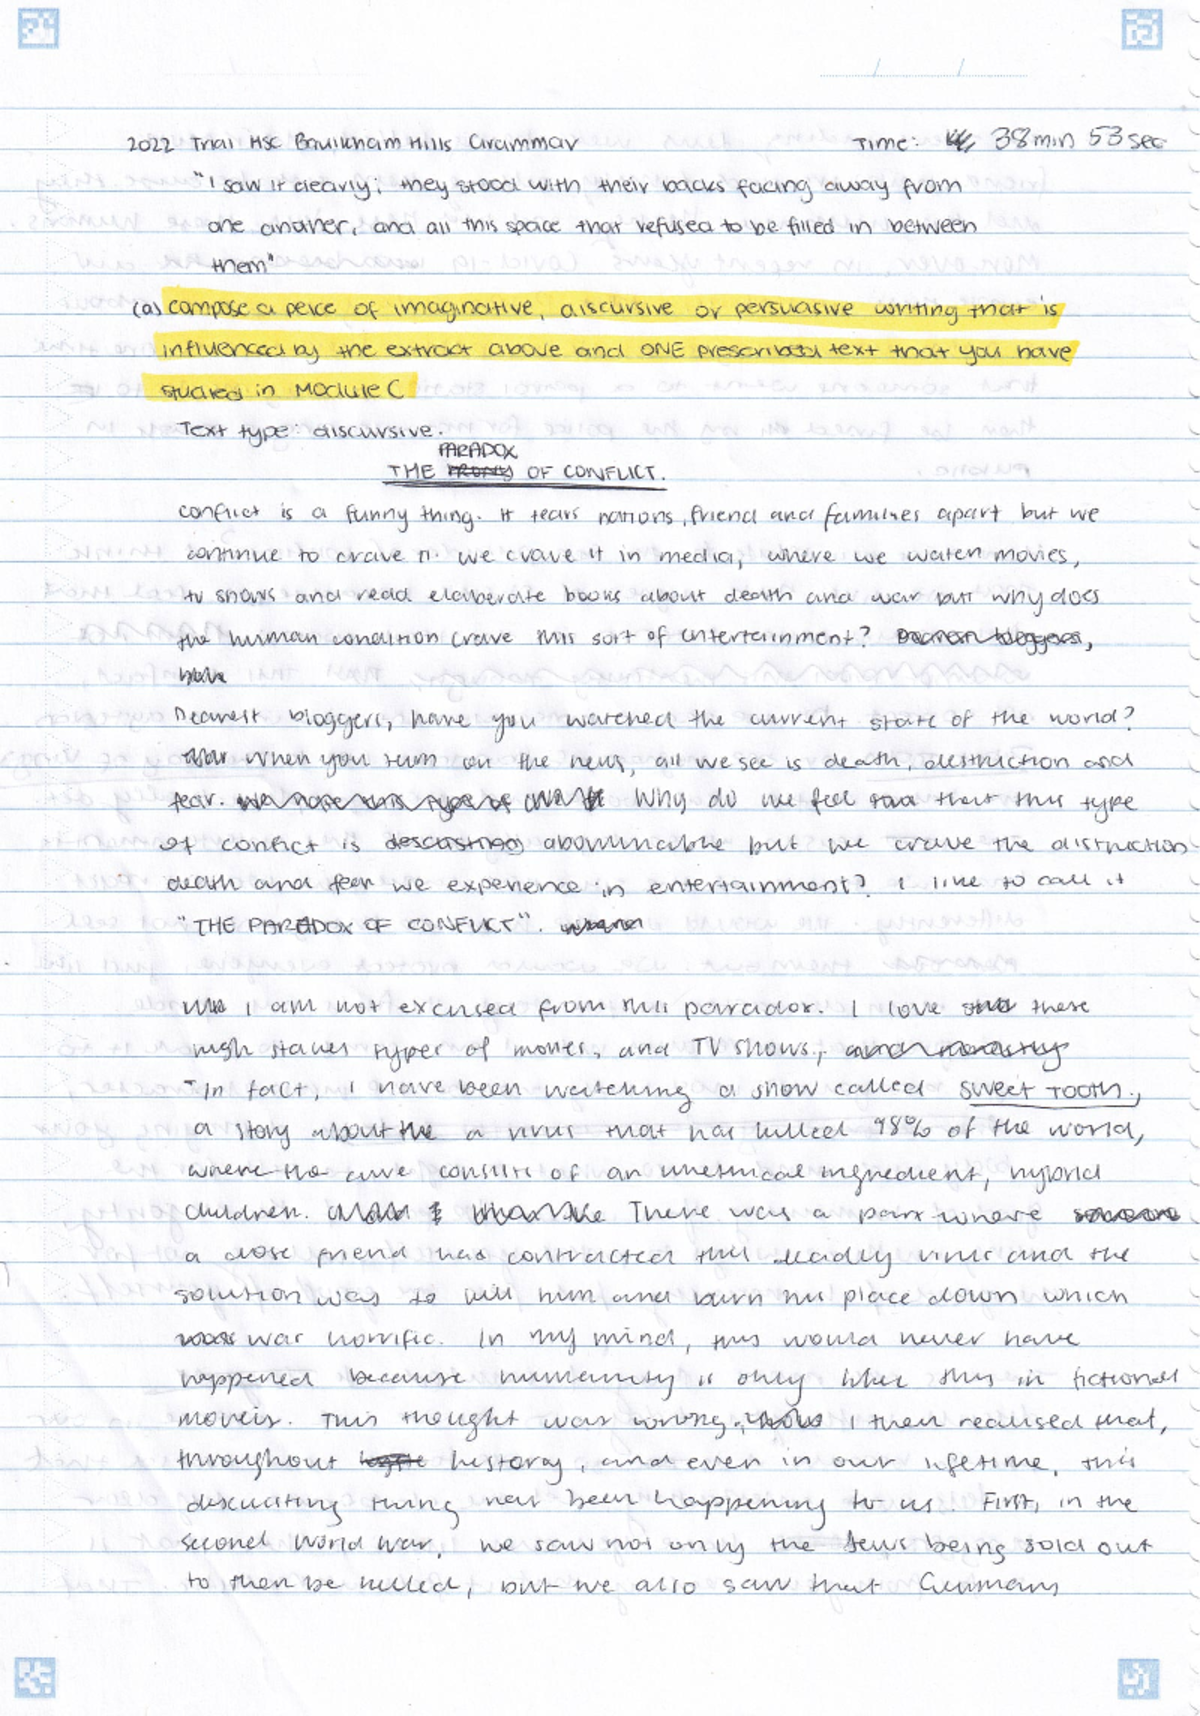 2022 Trial HSC Baulkham Hills Grammar Time: 38min 53sec
"I saw it clearly; they stood with their backs facing away from
one another, and all this space that refused to be filled in between
them"
(a) compose a peice of imaginative, discursive or persuasive writing that is
influenced by the extract above and ONE prescribed text that you have
studied in Module C
Text type: discursive.
PARADOX
THE OF CONFLICT.
conflict is a funny thing. It tears nations, friend and families apart but we
continue to crave it. we crave it in media, where we watch movies,
tv shows and read elaberate books about death and war but why does
the human condition crave this sort of entertainment?
Dearest bloggers, have you watched the current state of the world?
When you turn on the news, all we see is death, destruction and
fear. Why do we feel that this type
of conflict is abominable but we crave the distruction
death and fear we experience in entertainment? I like to call it
"THE PARADOX OF CONFLICT".
I am not excused from this paradox. I love these
high stakes types of movies, and TV shows,
In fact, I have been watching a show called SWEET TOOTH,
a story about a virus that has killed 98% of the world,
where the cure consists of an unethical ingredient, hybrid
children. There was a part where
a close friend had contracted this deadly virus and the
solution was to kill him and burn his place down which
was horrific. In my mind, this would never have
happened because humanity is only like this in fictional
moveis. This thought was wrong. I then realised that,
throughout history, and even in our lifetime, this
thing has been happening to us. First, in the
second world war, we saw not only the Jews being sold out
to then be killed, but we also saw that Germans